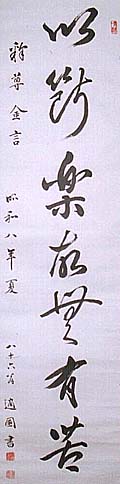 以断楽故無有苦
釋尊金言 昭和八年夏 八十六翁 適書